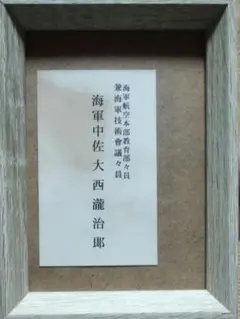 海軍航空本部教育部々員
兼海軍技術會議々員
海軍中佐 大西瀧治郎